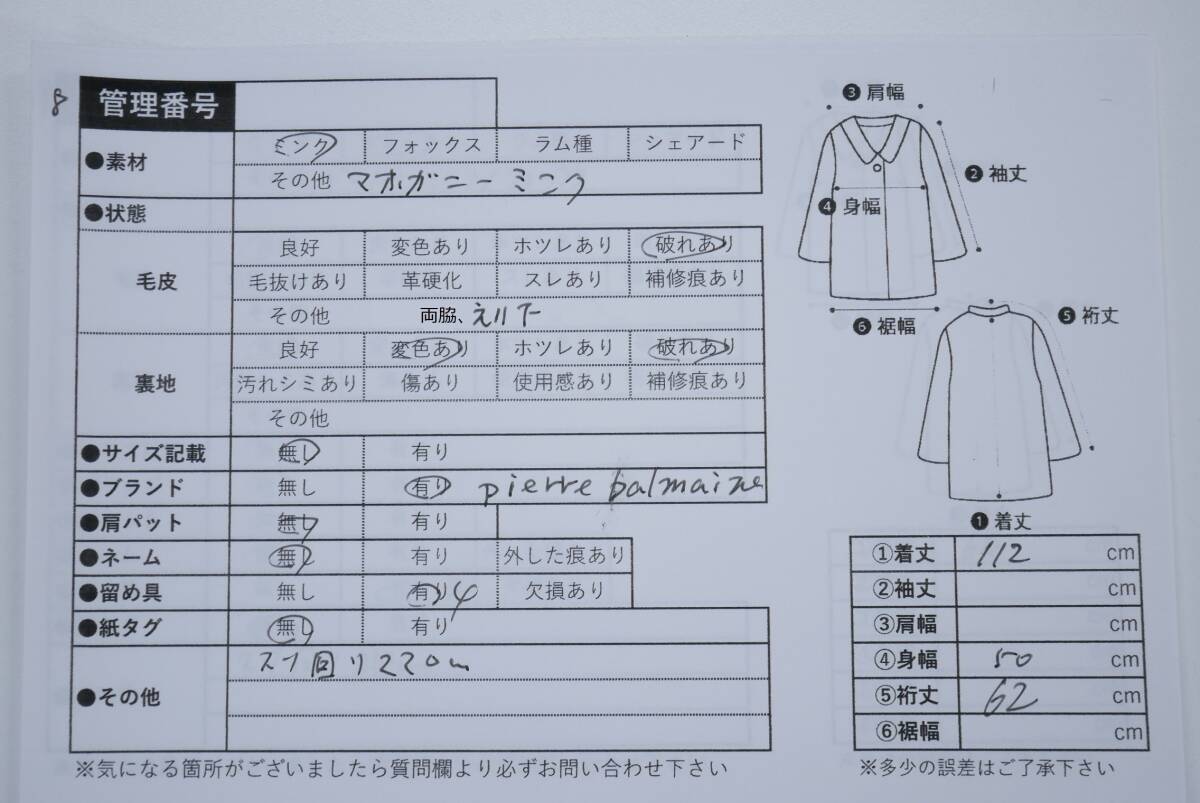 8
管理番号
●素材 ミンク フォックス ラム種 シェアード
その他 マホガニーミンク
●状態
毛皮 良好 変色あり ホツレあり 破れあり
毛抜けあり 革硬化 スレあり 補修痕あり
その他 両脇、えり下
裏地 良好 変色あり ホツレあり 破れあり
汚れシミあり 傷あり 使用感あり 補修痕あり
その他
●サイズ記載 無し 有り
●ブランド 無し 有り pierre balmaine
●肩パット 無し 有り
●ネーム 無し 有り 外した痕あり
●留め具 無し 有り 4 欠損あり
●紙タグ 無し 有り
●その他 スソ回り220cm
※気になる箇所がございましたら質問欄より必ずお問い合わせ下さい
❸肩幅
❷袖丈
❹身幅
❻裾幅
❺裄丈
❶着丈
①着丈 112 cm
②袖丈 cm
③肩幅 cm
④身幅 50 cm
⑤裄丈 62 cm
⑥裾幅 cm
※多少の誤差はご了承下さい